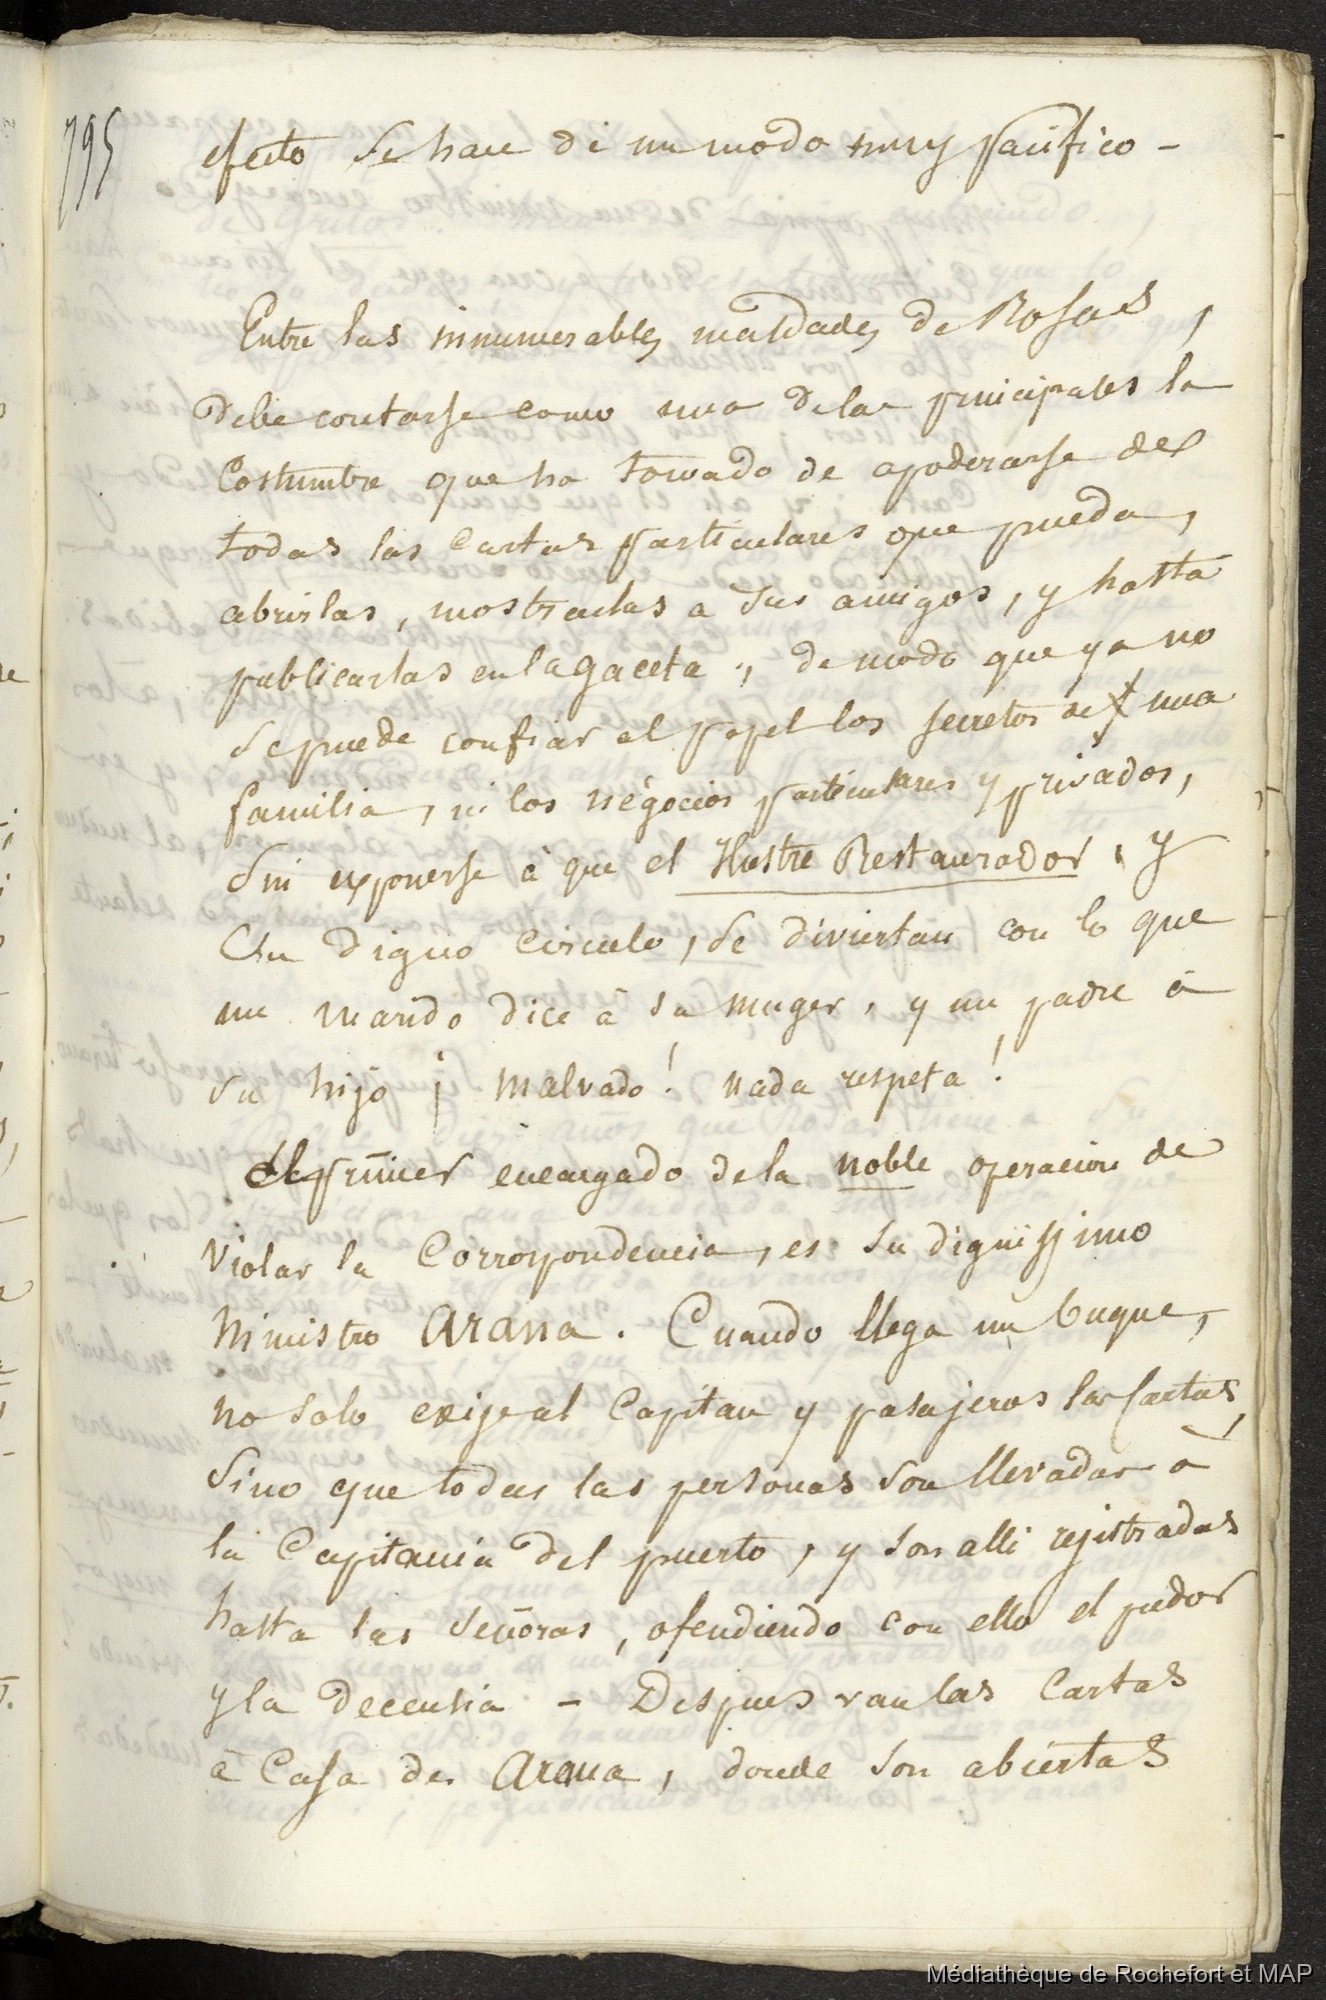 795
efecto se hace de un modo muy pacifico -
Entre las innumerables maldades de Rosas,
debe contarse como una de las principales la
Costumbre que ha tomado de apoderarse de
todas las Cartas particulares que pueda,
abrirlas, mostrarlas a sus amigos, y hasta
publicarlas en la gaceta, de modo que ya no
se puede confiar al papel los secretos de una
familia, ni los négocios particulares y privados,
Sin exponerse à que el Ilustre Restaurador, y
Su digno Circulo, se diviertan con lo que
un marido dice à su muger, y un padre à
su hijo ¡ malvado! nada respeta!
El primer encargado de la noble operacion de
Violar la Correspondencia, es su dignissimo
Ministro Arana. Cuando llega un buque,
no solo exije al Capitan y pasajeros las Cartas,
Sino que todas las personas son llevadas à
la Capitania del puerto, y son alli rejistradas
hasta las Señoras, ofendiendo con ello el pudor
y la decensia - Despues van las Cartas
à Casa de Arana, donde son abiertas
Médiathèque de Rochefort et MAP